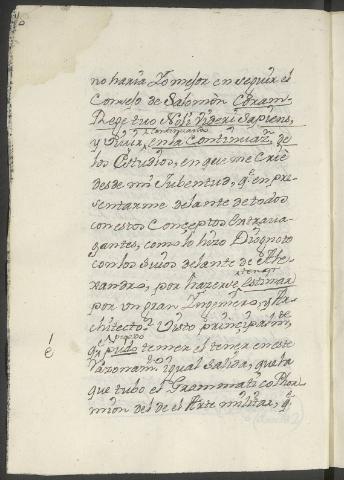 no haria lo mejor en seguir el
Consejo de Salomòn Coram-
Rege tuo Noli Videri Sapiens,
continuando
y Vivir en la Continuaz.n de
los Estudios, en que me Criè
desde mi Iubentud, q.e en pre-
sentarme delante de todos
con estos Conceptos Extrava-
gantes, como lo hizo Diogneto
con los suios delante de Ale-
xandro, por hazerse estimar
por un gran Inginiero, y Ar-
chitecto? Visto principalm.te
q.e pudo temer el tener en este
Razonam.to igual Salida, que la
que tubo el Grammatico Phor-
mion del de el Arte militar, q.e